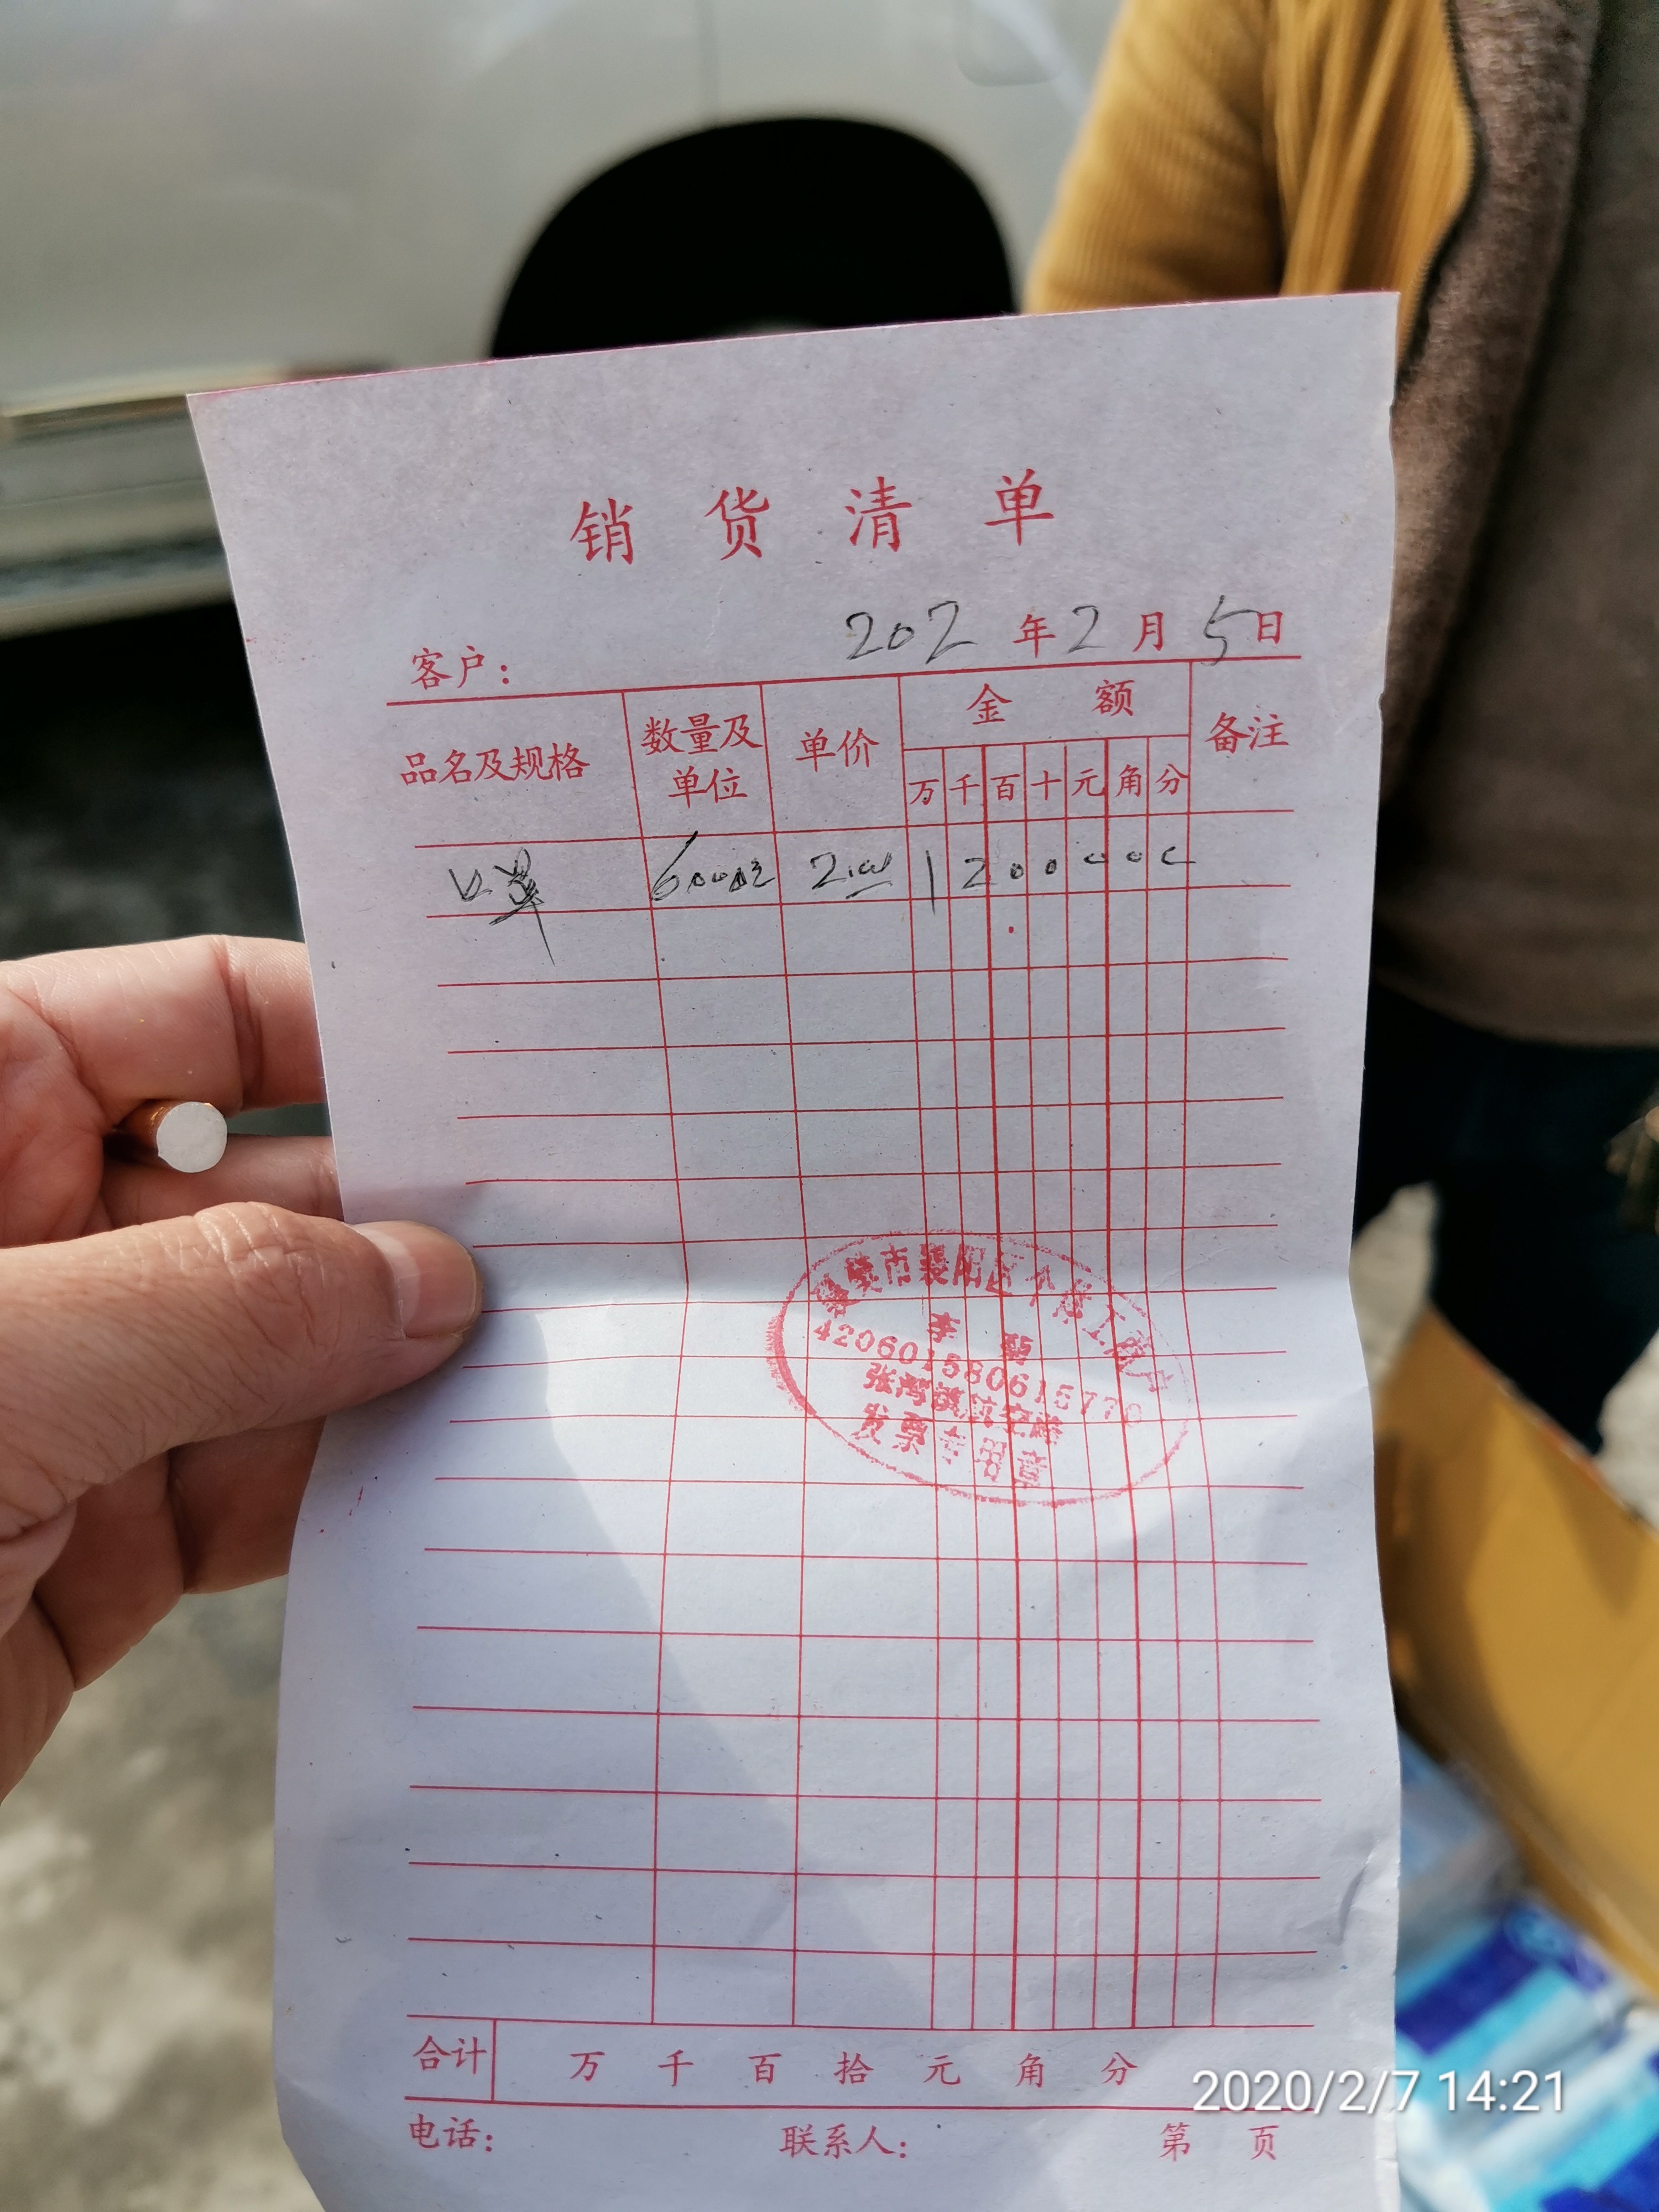 销货清单
202 年 2 月 5 日
客户：
品名及规格 数量及单位 单价 金额 备注
万 千 百 十 元 角 分
口罩 6000 2.00 1 2 0 0 0 0 0
市襄阳区 工商户
李
420601580615776
张湾 航空路
发票专用章
合计 万 千 百 拾 元 角 分
电话： 联系人： 第 页
2020/2/7 14:21